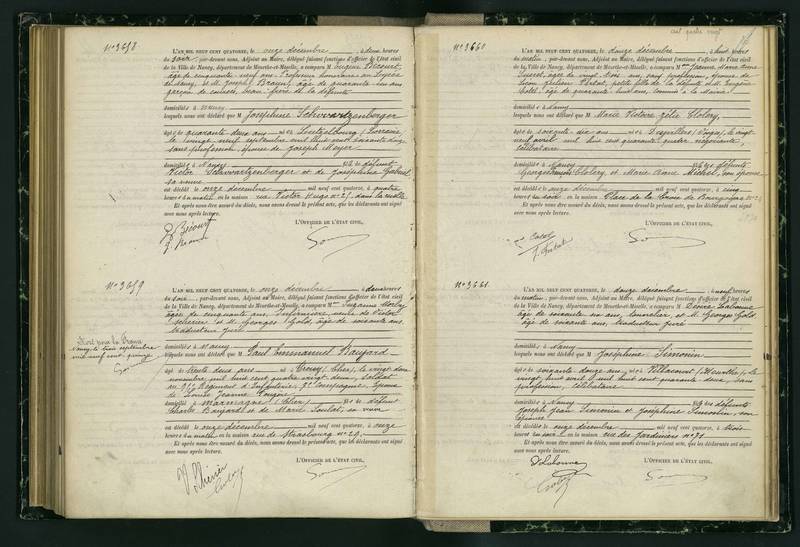 N° 3658
L'AN MIL NEUF CENT QUATORZE, le onze décembre à deux heures
du soir, par-devant nous, Adjoint au Maire, délégué faisant fonctions d'officier de l'état civil
de la Ville de Nancy, département de Meurthe-et-Moselle, a comparu M. Eugène Bécourt,
âgé de cinquante neuf ans, Professeur honoraire au Lycée
de Nancy, et M. Joseph Braun, âgé de quarante un ans
garçon de beau-frère de la défunte
domiciliés à Nancy
lesquels nous ont déclaré que M Joséphine Schwartzenberger
âgée de quarante deux ans née à Lorraine
le vingt neuf septembre mil huit cent soixante douze
sans profession, épouse de Joseph Meyer
domiciliée à Nancy fille de défunt
Victor Schwartzenberger et de Joséphine Gabriel
sa veuve
est décédée le onze décembre mil neuf cent quatorze, à quatre
heures du matin, en la maison rue Victor Hugo n° 27,
Et après nous être assuré du décès, nous avons dressé le présent acte, que les déclarants ont signé
avec nous après lecture.
L'OFFICIER DE L'ÉTAT CIVIL,
E. Bécourt
J. Braun
N° 3659
L'AN MIL NEUF CENT QUATORZE, le onze décembre à deux heures
du soir, par-devant nous, Adjoint au Maire, délégué faisant fonctions d'officier de l'état civil
de la Ville de Nancy, département de Meurthe-et-Moselle, a comparu Mme Suzanne
âgée de cinquante ans, Infirmière, veuve de Victor
et M. Georges Gold, âgé de soixante ans,
traducteur juré
domiciliés à Nancy
lesquels nous ont déclaré que M Paul Emmanuel Baujard
âgé de trente deux ans né à (Cher), le vingt deux
novembre mil huit cent quatre vingt deux, soldat
au Régiment d'Infanterie, Compagnie, époux
de Louise Jeanne
domicilié à Marmagne (Cher) fils de défunt
Charles Baujard et de Marie sa veuve
est décédé le onze décembre mil neuf cent quatorze, à onze
heures du matin rue de Strasbourg n° 29.
Et après nous être assuré du décès, nous avons dressé le présent acte, que les déclarants ont signé
avec nous après lecture.
L'OFFICIER DE L'ÉTAT CIVIL,
Mort pour la France
Nancy, le trois septembre
mil neuf cent quinze
cent quatre vingt
N° 3660
L'AN MIL NEUF CENT QUATORZE, le douze décembre à huit heures
du matin, par-devant nous, Adjoint au Maire, délégué faisant fonctions d'officier de l'état civil
de la Ville de Nancy, département de Meurthe-et-Moselle, a comparu Mme Jeanne Marie Anne
âgée de vingt trois ans, sans profession, épouse de
Léon petite fille de la défunte et M. Eugène
âgé de quarante huit ans, commis à la Mairie
domiciliés à Nancy
lesquels nous ont déclaré que M Marie Victoire Zélie
âgée de soixante dix ans née à (Vosges), le vingt
neuf avril mil huit cent quarante quatre
célibataire
domiciliée à Nancy fille des défunts
et Marie Anne Michel, son épouse
est décédée le onze décembre mil neuf cent quatorze, à cinq
heures du soir, en la maison Place de la Croix de Bourgogne n°
Et après nous être assuré du décès, nous avons dressé le présent acte, que les déclarants ont signé
avec nous après lecture.
L'OFFICIER DE L'ÉTAT CIVIL,
N° 3661
L'AN MIL NEUF CENT QUATORZE, le douze décembre à neuf heures
du matin, par-devant nous, Adjoint au Maire, délégué faisant fonctions d'officier de l'état civil
de la Ville de Nancy, département de Meurthe-et-Moselle, a comparu M. Désiré Labonne
âgé de soixante un ans, tonnelier, et M. Georges Gold
âgé de soixante ans, traducteur juré
domiciliés à Nancy
lesquels nous ont déclaré que M Joséphine Simonin
âgée de soixante douze ans, née à (Meurthe), le
vingt huit avril mil huit cent quarante deux, sans
profession, célibataire
domiciliée à Nancy fille des défunts
Joseph Jean Simonin et Joséphine son
épouse
est décédée le onze décembre mil neuf cent quatorze, à trois
heures du soir, en la maison rue des Jardiniers n° 71
Et après nous être assuré du décès, nous avons dressé le présent acte, que les déclarants ont signé
avec nous après lecture.
L'OFFICIER DE L'ÉTAT CIVIL,
D. Labonne